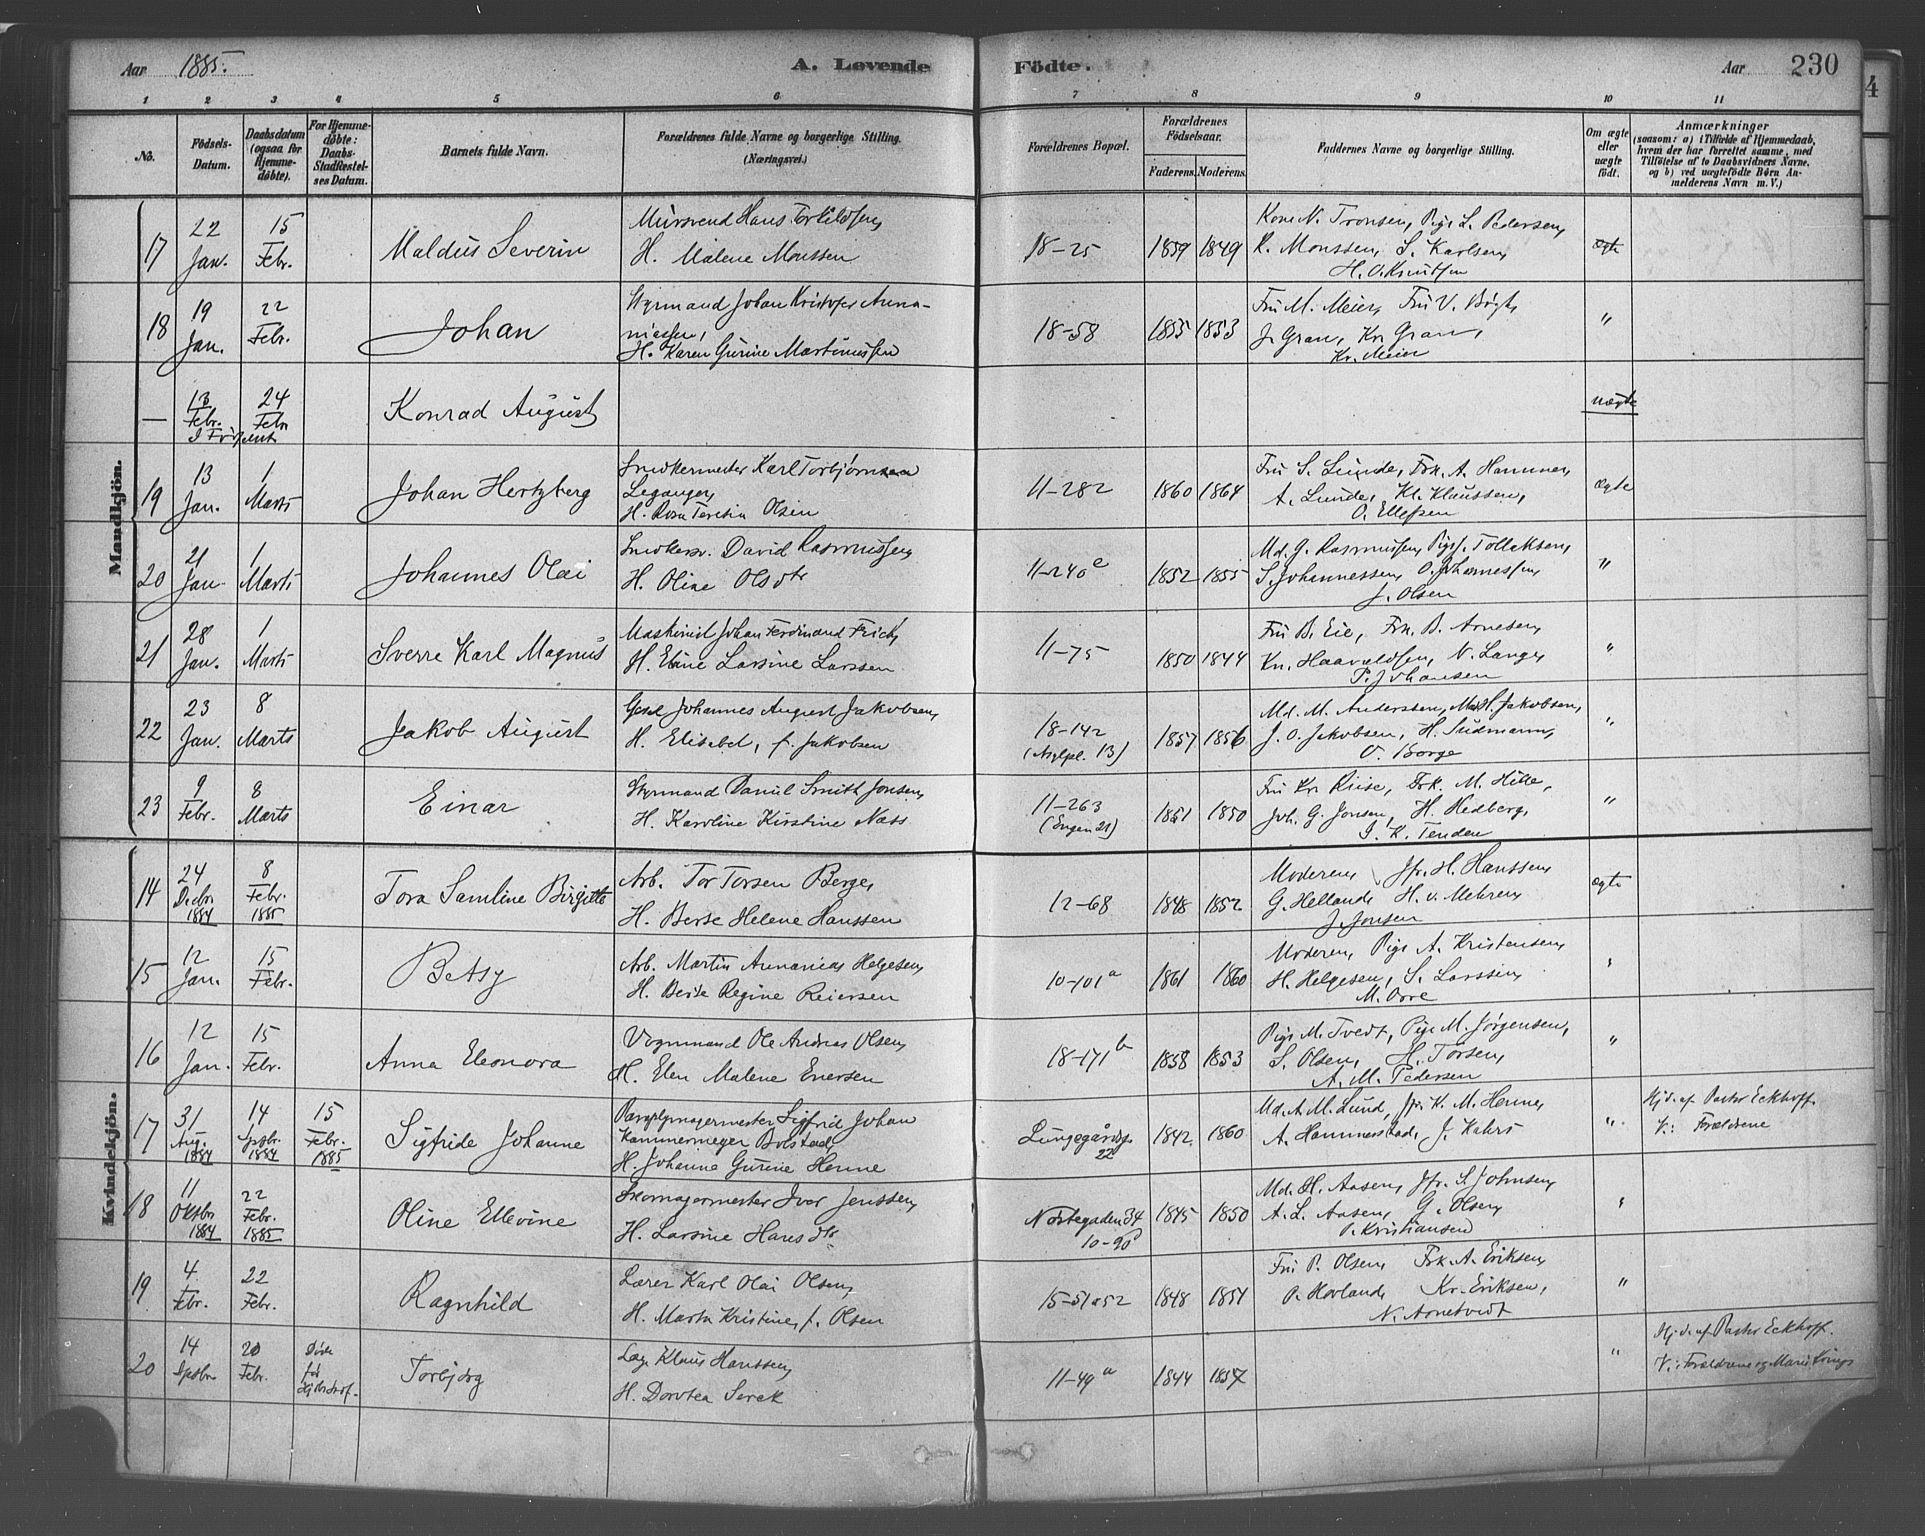 Aar 1885. A. Levende Födte. Aar 230
1 2 3 4 5 6 7 8 9 10 11
No. Födsels-Datum. Daabsdatum (ogsaa for Hjemmedöbte). For Hjemmedöbte: Daabs-Stadfæstelses Datum. Barnets fulde Navn. Forældrenes fulde Navne og borgerlige Stilling. (Næringsvei.) Forældrenes Bopæl. Forældrenes Födselsaar. Faderens. Moderens. Faddernes Navne og borgerlige Stilling. Om ægte eller uægte födt. Anmærkninger (saasom: a) i Tilfælde af Hjemmedaab, hvem der har forrettet samme, med Tilföielse af to Daabsvidners Navne, og b) ved uægtefödte Börn Anmelderens Navn m. V.)
Mandkjön.
17 22 Jan. 15 Febr. Maldus Severin Mursvend Hans Torkildsen,
H. Malene Monssen 18-25 1859 1849 Kone N. Tronsen, Pige L. Pedersen,
R. Monssen, S. Karlsen,
H. O. Knutsen ægte
18 19 Jan. 22 Febr. Johan Styrmand Johan Kristofer Anna-
niassen,
H. Karen Gurine Martinussen 18-58 1855 1853 Fru M. Meier, Fru V. Bøgh,
J. Gran, Kr. Gran,
Kr. Meier "
— 13 Febr. 24 Febr Konrad August uægte
19 13 Jan. 1 Marts Johan Hertzberg Snedkermester Karl Torbjørnsen
Leganger,
H. Rosa Teresia Olsen 11-282 1860 1864 Fru S. Lunde, Frk. A. Hammer,
A. Lunde, Kl. Klaussen,
O. Ellefsen ægte
20 21 Jan. 1 Marts Johannes Olai Snedkersv. David Rasmussen,
H. Oline Olsdtr 11-240e 1852 1855 Md. G. Rasmussen, Pige J. Tolleksen,
S. Johannessen, O. Johannessen,
J. Olsen "
21 28 Jan. 1 Marts Sverre Karl Magnus Maskinist Johan Ferdinand Frich,
H. Eline Larsine Larssen 11-75 1850 1844 Fru B. Eie, Frk. B. Arnesen,
Kn. Haavaldsen, N. Lange,
P. Johansen "
22 23 Jan. 8 Marts Jakob August Johannes August Jakobsen,
H. Elisabet, f. Jakobsen 18-142
(Asylpl. 13) 1857 1856 Md. M. Anderssen, Md. H. Jakobsen,
J. O. Jakobsen, H. Sudmann,
O. Borge "
23 9 Febr. 8 Marts Einar Styrmand Daniel Smith Jonsen,
H. Karoline Kirstine Næss 11-263
(Engen 21) 1851 1850 Fru Kr. Riise, Frk. M. Hille,
Joh. G. Jonsen, H. Hedberg,
J. K. Tenden "
Kvindekjön.
14 24 Decbr 1884 8 Febr. 1885 Tora Samline Birgitte Arb. Tor Torsen Berge,
H. Berte Helene Hanssen 12-68 1848 1852 Moderen, Jfr. H. Hanssen,
G. Helland, H. v. Mehren,
J. Jonsen ægte
15 12 Jan. 15 Febr. Betsy Arb. Martin Annanias Helgesen,
H. Berte Regine Reiersen 10-101a 1861 1860 Moderen, Pige A. Kristensen,
H. Helgesen, S. Larssen,
M. Orre "
16 12 Jan. 15 Febr. Anna Eleonora Vognmand Ole Andreas Olsen,
H. Elen Malene Eversen 18-171b 1858 1853 Pige M. Tvedt, Pige M. Jørgensen,
S. Olsen, H. Torsen,
A. M. Pedersen "
17 31 Aug. 1884 14 Spbr. 1884 15 Febr. 1885 Sigfride Johanne Paraplymagermester Sigfrid Johan
Kammermeyer Bolstad,
H. Johanne Gurine Henne Lungegårdsg.
22 1842 1860 Md. A. M. Lund, Jfr. K. M. Henne,
A. Hammerstad, J. Kahrs " Hjd. af Pastor Eckhoff.
V.: Forældrene
18 11 Oktbr 1884 22 Febr. 1885 Oline Ellevine Skomagermester Iver Jenssen,
H. Larsine Hansdtr Nøstegaden 34
10-90 1845 1850 Md. H. Aasen, Jfr. S. Johnsen,
A. L. Aasen, G. Olsen,
P. Kristiansen "
19 4 Febr. 22 Febr. Ragnhild Lærer Karl Olai Olsen,
H. Marta Kristine, f. Olsen 15-51a52 1848 1851 Fru P. Olsen, Frk. A. Eriksen,
P. Hovland, Kr. Eriksen,
N. Arnetvedt "
20 14 Spbr 20 Febr. Døde før Torbjørg Læge Klaus Hanssen,
H. Dorotea Serck 11-49a 1844 1857 " Hjd. af Pastor Eckhoff.
V.: Forældrene og Marie